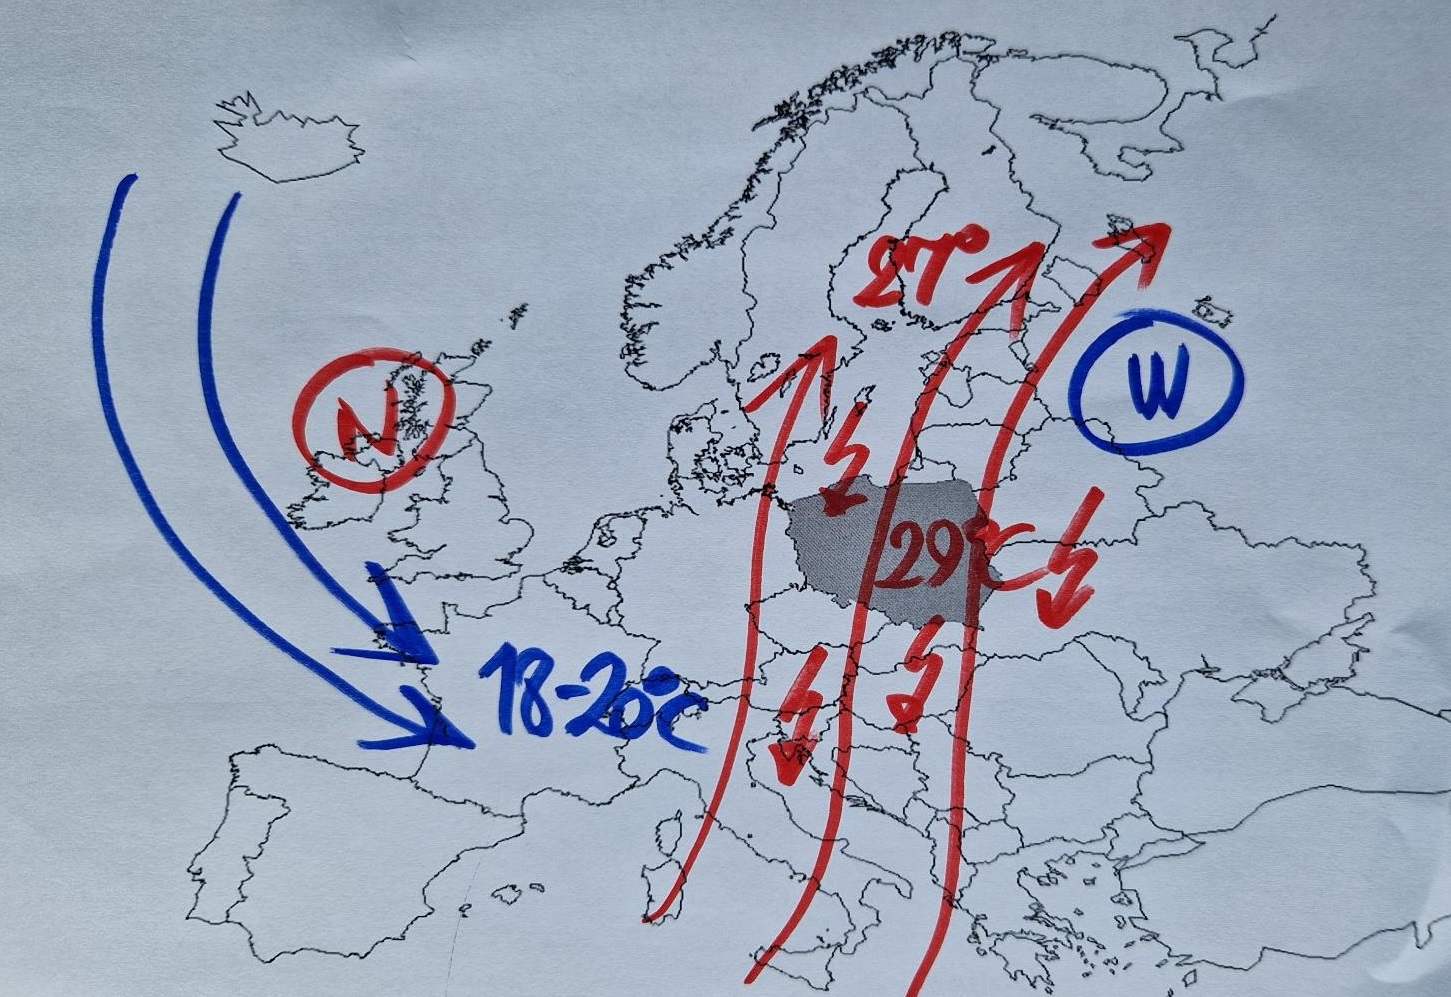 27°
W
N
29°C
18-20°C